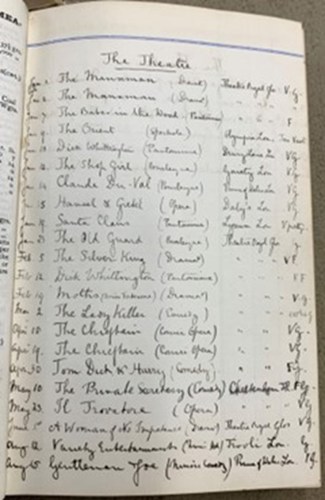 The Theatre
Jan The Manxman (Drama) Theatre Royal Glos V.G.
Jan The Manxman (Drama) " " "
Jan 7 The Babes in the Wood (Pantomime) " " " F
Jan 9 The Orient (Spectacle) Olympia Lon.
Jan Dick Whittington (Pantomime) Drury Lane Lon V.G.
Jan The Shop Girl (Burlesque) Gaiety Lon V.G.
Jan 14 Claude Du-Val (Burlesque) Prince of Wales Lon V.G.
Jan 15 Hansel & Gretel (Opera) Daly's Lon V.G.
Jan Santa Claus (Pantomime) Lyceum Lon V.
Jan The Old Guard (Burlesque) Theatre Royal Glos G
Feb 5 The Silver King (Drama) " " " V.F
Feb 12 Dick Whittington (Pantomime) " " " V.F
Feb 19 (Drama) " " " V.G.
Mar 2 The Lady Killer (Comedy) " " "
Apl 10 The Chieftain (Comic Opera) " " " V.G.
Apl The Chieftain (Comic Opera) " " " V.G.
Apl 30 Tom Dick & Harry (Comedy) " " "
May 10 The Private Secretary (Comedy) Cheltenham V.G.
May 23 Il Trovatore (Opera) " " " V.G.
June 1st A Woman of No Importance (Drama) Theatre Royal Glos V.G.
Aug 12 Variety Entertainments Tivoli Lon. G.
Aug 15 Gentleman Joe (Musical Comedy) Prince of Wales Lon. V.G.